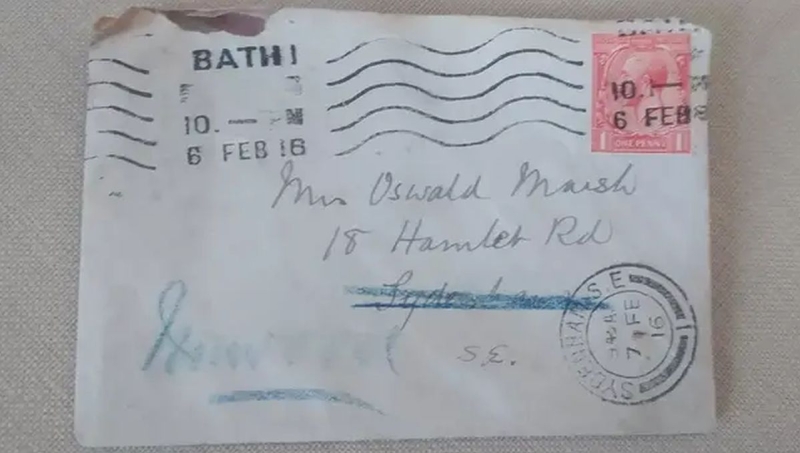 BATH
10. —
6 FEB 16
10. —
6 FEB
ONE PENNY
1 1
Mrs Oswald Marsh
18 Hamlet Rd
Sydenham
S.E.
SYDENHAM S.E.
7 FE
16